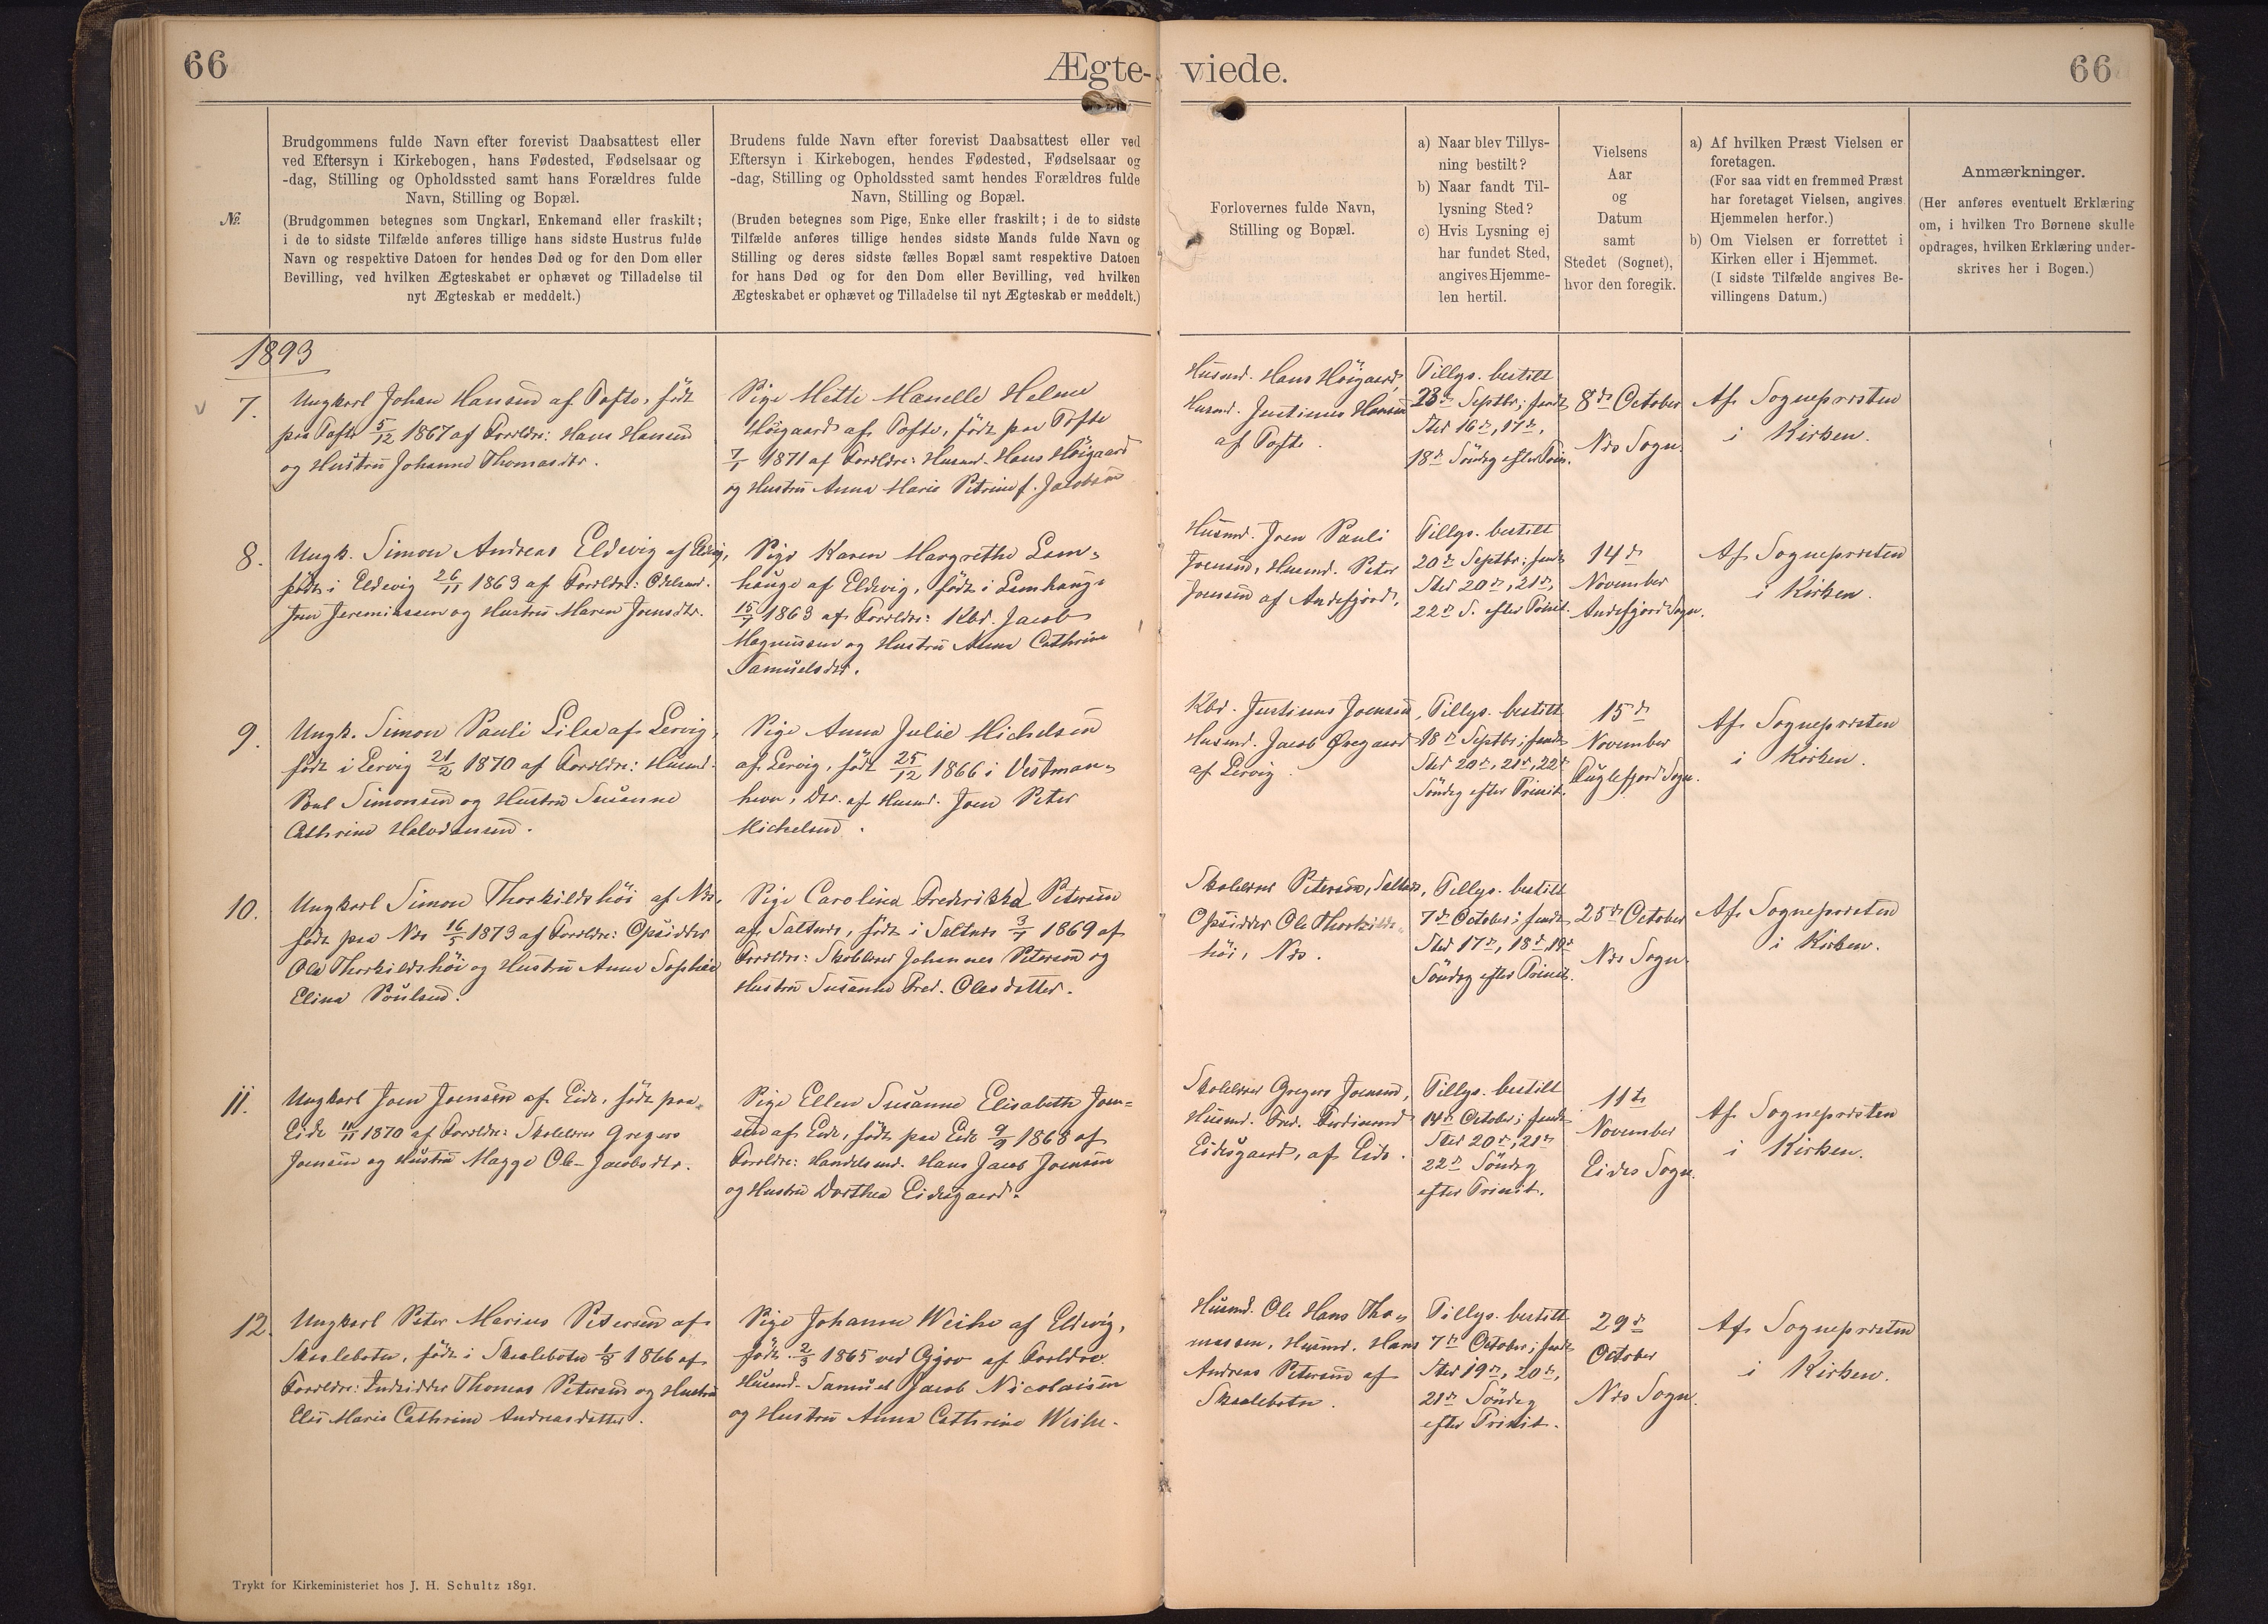 66
Ægte-
viede.
66
№.
Brudgommens fulde Navn efter forevist Daabsattest eller
ved Eftersyn i Kirkebogen, hans Fødested, Fødselsaar og
-dag, Stilling og Opholdssted samt hans Forældres fulde
Navn, Stilling og Bopæl.
(Brudgommen betegnes som Ungkarl, Enkemand eller fraskilt;
i de to sidste Tilfælde anføres tillige hans sidste Hustrus fulde
Navn og respektive Datoen for hendes Død og for den Dom eller
Bevilling, ved hvilken Ægteskabet er ophævet og Tilladelse til
nyt Ægteskab er meddelt.)
Brudens fulde Navn efter forevist Daabsattest eller ved
Eftersyn i Kirkebogen, hendes Fødested, Fødselsaar og
-dag, Stilling og Opholdssted samt hendes Forældres fulde
Navn, Stilling og Bopæl.
(Bruden betegnes som Pige, Enke eller fraskilt; i de to sidste
Tilfælde anføres tillige hendes sidste Mands fulde Navn og
Stilling og deres sidste fælles Bopæl samt respektive Datoen
for hans Død og for den Dom eller Bevilling, ved hvilken
Ægteskabet er ophævet og Tilladelse til nyt Ægteskab er meddelt.)
Forlovernes fulde Navn,
Stilling og Bopæl.
a) Naar blev Tillys-
ning bestilt?
b) Naar fandt Til-
lysning Sted?
c) Hvis Lysning ej
har fundet Sted,
angives Hjemme-
len hertil.
Vielsens
Aar
og
Datum
samt
Stedet (Sognet),
hvor den foregik.
a) Af hvilken Præst Vielsen er
foretagen.
(For saa vidt en fremmed Præst
har foretaget Vielsen, angives
Hjemmelen herfor.)
b) Om Vielsen er forrettet i
Kirken eller i Hjemmet.
(I sidste Tilfælde angives Be-
villingens Datum.)
Anmærkninger.
(Her anføres eventuelt Erklæring
om, i hvilken Tro Børnene skulle
opdrages, hvilken Erklæring under-
skrives her i Bogen.)
1893
7.
Ungkarl Johan Hansen af Tofte, født
paa Tofte 5/12 1867 af Forældre: Hans Hansen
og Hustru Johanne Thomasdtr.
Pige Mette Manelle Helene
Höigaard af Tofte, født paa Tofte
7/1 1871 af Forældre: Husmd. Hans Höigaard
og Hustru Anna Marie Petrine f. Jacobsen
Husmd. Hans Höigaard,
Husmd. Justinus Hansen
af Tofte.
Tillys. bestilt
23de Septbr; fandt
Sted 16de, 17de,
18de Söndag efter Trin.
8de October
Næs Sogn.
Af Sognepræsten
i Kirken.
8.
Ungk. Simon Andreas Eldevig af Eldevig,
født i Eldevig 26/11 1863 af Forældre: Odelsmd.
Joen Jeremiassen og Hustru Maren Joensdtr.
Pige Karen Margrethe Lam-
hauge af Eldevig, født i Lamhauge
15/7 1863 af Forældre: Kbd. Jacob
Magnussen og Hustru Anna Cathrine
Samuelsdtr.
Husmd. Joen Pauli
Joensen, Husmd. Peter
Joensen af Andefjord,
Tillys. bestilt
20de Septbr; fandt
Sted 20de, 21de,
22de S. efter Trinit.
14de
November
Andefjord Sogn.
Af Sognepræsten
i Kirken.
9.
Ungk. Simon Pauli Lilaa af Lervig,
født i Lervig 21/2 1870 af Forældre: Husmd.
Poul Simonsen og Hustru Susanne
Cathrine Halvdansen.
Pige Anna Julie Michelsen
af Lervig, født 25/12 1866 i Vestman-
havn, Dtr. af Husmd. Joen Peter
Michelsen.
Kbd. Justinus Joensen,
Husmd. Jacob Øregaard
af Lervig.
Tillys. bestilt
18de Septbr; fandt
Sted 20de, 21de, 22de
Söndag efter Trinit.
15de
November
Fuglefjord Sogn.
Af Sognepræsten
i Kirken.
10.
Ungkarl Simon Thorkildshöi af Næs,
født paa Næs 16/5 1873 af Forældre: Opsidder
Ole Thorkildshöi og Hustru Anna Sophie
Elina Poulsen.
Pige Carolina Frederikka Petersen
af Saltnæs, født i Saltnæs 3/7 1869 af
Forældre: Skolelærer Johannes Petersen og
Hustru Susanne Fred. Olesdatter.
Skolelærer Petersen, Saltnæs,
Opsidder Ole Thorkilds-
höi, Næs.
Tillys. bestilt
7de October; fandt
Sted 17de, 18de, 19de
Söndag efter Trinit.
25de October
Næs Sogn.
Af Sognepræsten
i Kirken.
11.
Ungkarl Joen Joensen af Eide, født paa
Eide 11/11 1870 af Forældre: Skolelærer Gregers
Joensen og Hustru Magge Ole-Jacobsdtr.
Pige Ellen Susanne Elisabeth Joen-
sen af Eide, født paa Eide 9/9 1868 af
Forældre: Handelsmd. Hans Jacob Joensen
og Hustru Dorthea Eidesgaard.
Skolelærer Gregers Joensen,
Husmd. Fred. Ferdinand
Eidesgaard, af Eide.
Tillys. bestilt
14de October; fandt
Sted 20de, 21de
22de Söndag
efter Trinit.
11te
November
Eides Sogn.
Af Sognepræsten
i Kirken.
12.
Ungkarl Peter Marius Petersen af
Skaalebotn, født i Skaalebotn 1/8 1866 af
Forældre: Indsidder Thomas Petersen og Hustru
Else Marie Cathrine Andreasdatter.
Pige Johanne Weihe af Eldevig,
født 2/3 1865 ved Gjov af Forældre
Husmd. Samuel Jacob Nicolaisen
og Hustru Anna Cathrine Weihe.
Husmd. Ole Hans Tho-
massen, Husmd. Hans
Andreas Petersen af
Skaalebotn.
Tillys. bestilt
7de October; fandt
Sted 19de, 20de,
21de Söndag
efter Trinit.
29de
October
Næs Sogn.
Af Sognepræsten
i Kirken.
Trykt for Kirkeministeriet hos J. H. Schultz 1891.